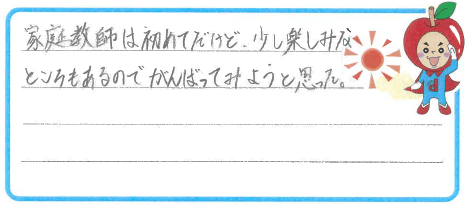 家庭教師は初めてだけど、少し楽しみな
ところもあるのでがんばってみようと思った。
d